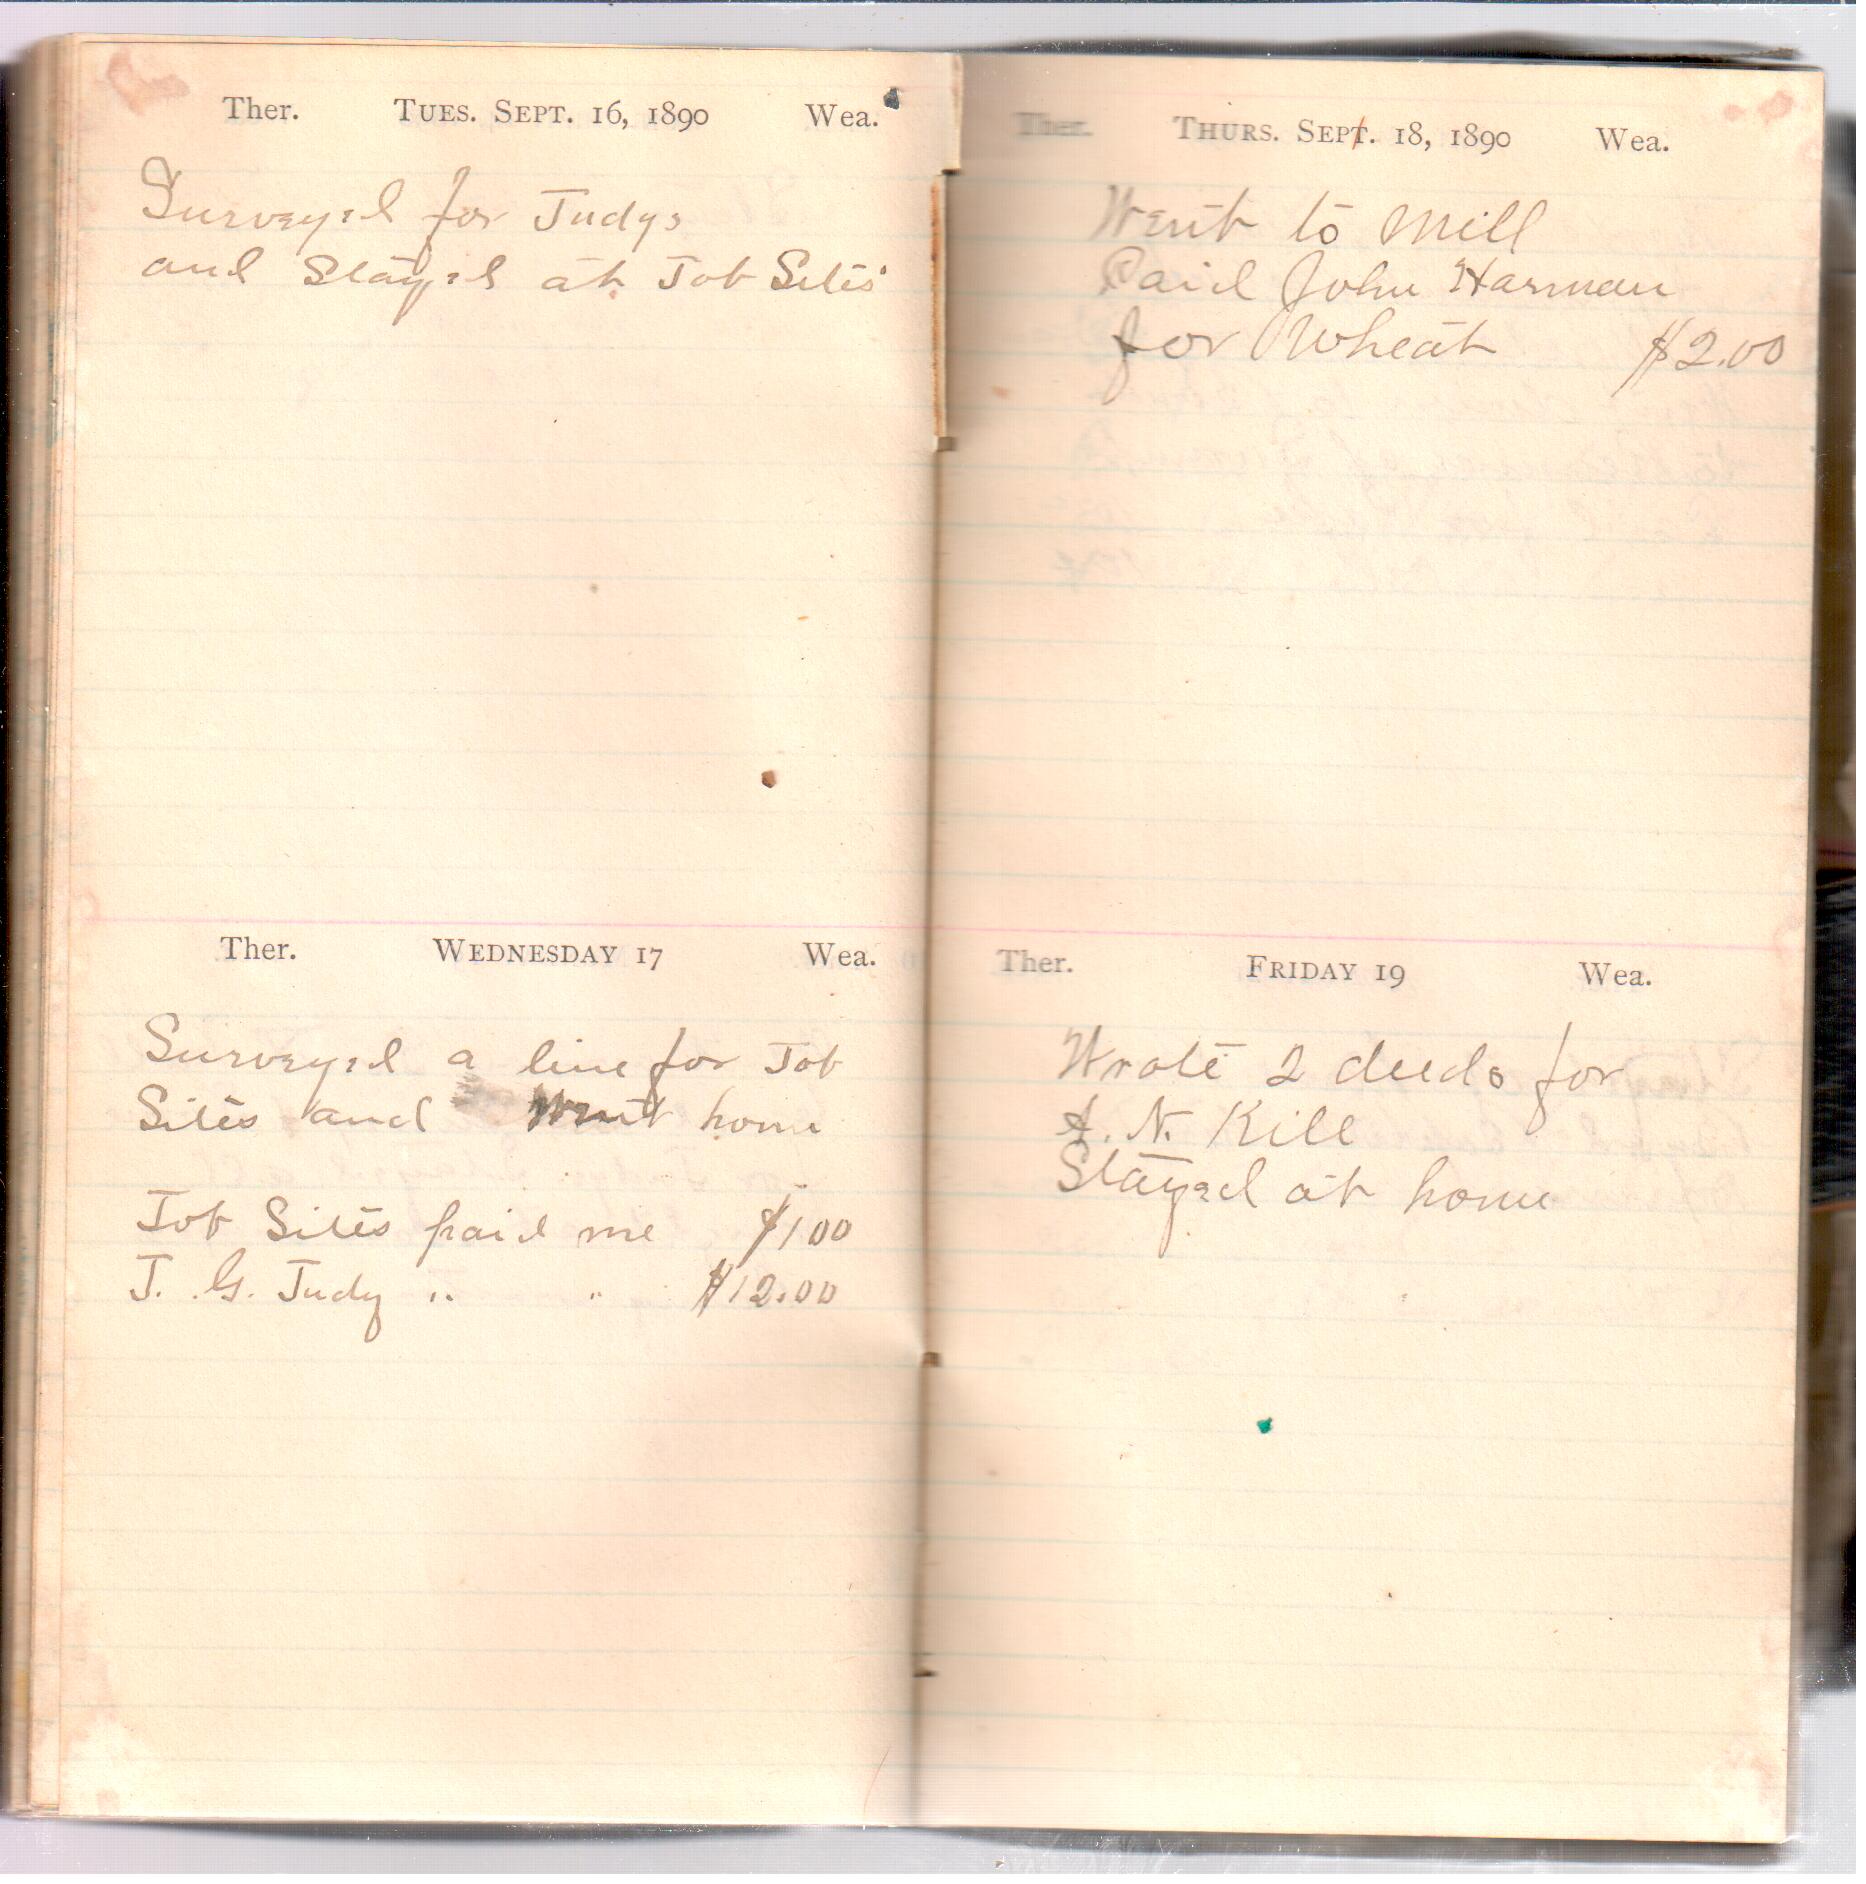 Ther. TUES. SEPT. 16, 1890 Wea.
Surveyed for Judys
and Stayed at Job Sites'
Ther. WEDNESDAY 17 Wea.
Surveyed a line for Job
Sites and Went home
Job Sites paid me $1 00
J. G. Judy " " $12.00
Ther. THURS. SEPT. 18, 1890 Wea.
Went to Mill
Paid John Harman
for Wheat $2.00
Ther. FRIDAY 19 Wea.
Wrote 2 deeds for
A. N. Kile
Stayed at home